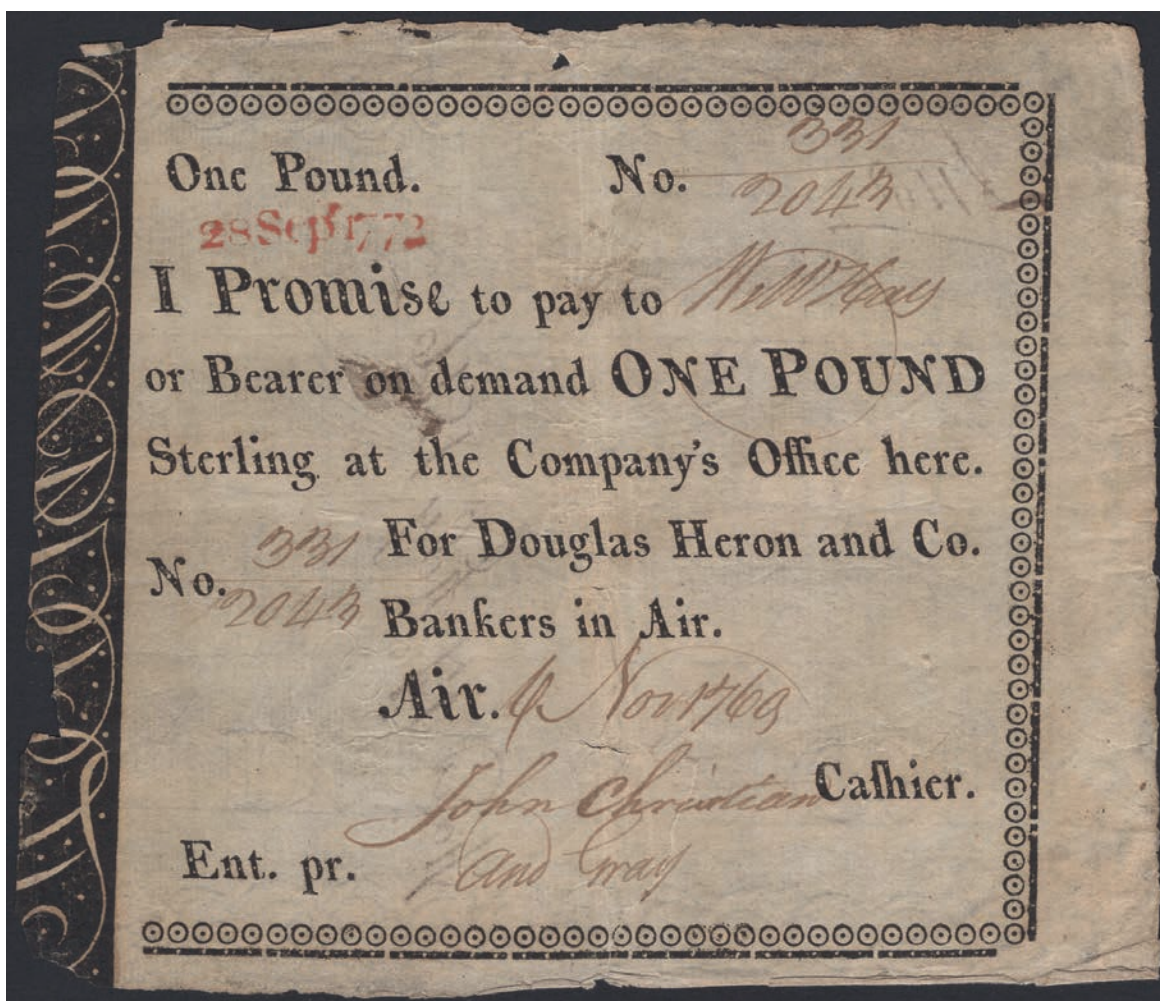 One Pound. No. 331
2043
28 Sept 1772
I Promise to pay to Wm Hay
or Bearer on demand ONE POUND
Sterling at the Company's Office here.
No. 331
2043
For Douglas Heron and Co.
Bankers in Air.
Air. 6 Nov 1769
John Christian Caſhier.
Ent. pr. And Gray